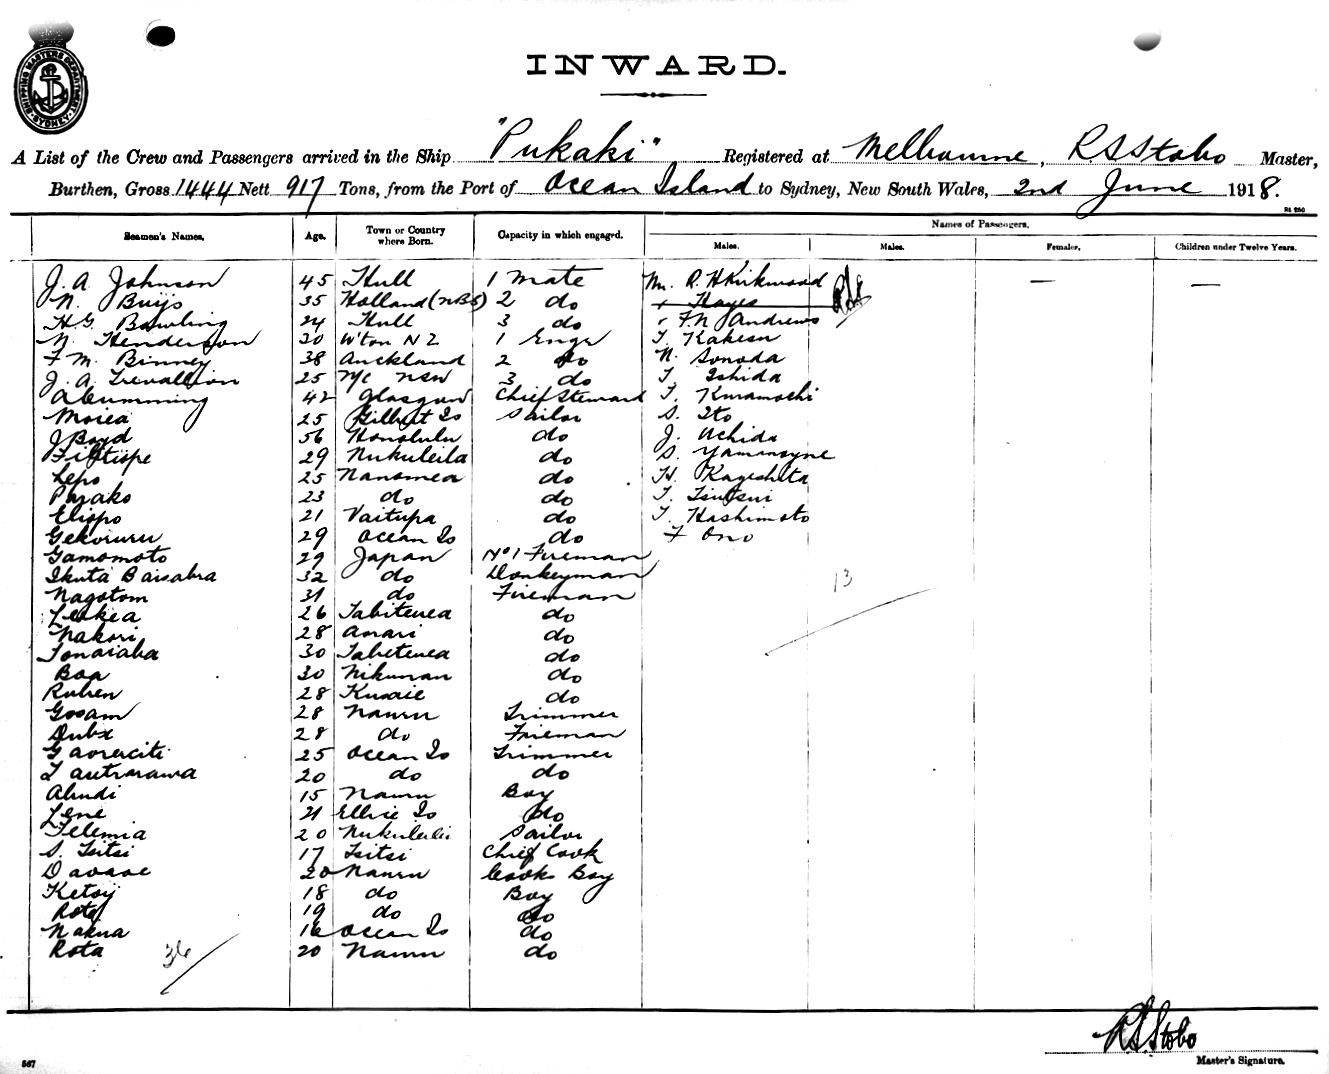 SHIPPING MASTERS DEPARTMENT SYDNEY
INWARD.
A List of the Crew and Passengers arrived in the Ship "Pukaki" Registered at Melbourne, R S Stobo Master,
Burthen, Gross 1444 Nett 917 Tons, from the Port of Ocean Island to Sydney, New South Wales, 2nd June 1918.
Seamen's Names. Age. Town or Country where Born. Capacity in which engaged. Names of Passengers.
Males. Males. Females. Children under Twelve Years.
J. A. Johnson 45 Hull 1 Mate Mr. R. H Kirkwood — —
N. Buijs 35 Holland (NBS) 2 do Hayes
H. G. Bowling 24 Hull 3 do F. N Andrews
N. Henderson 30 W'ton N Z 1 Engr T. Kakesu
F. M. Binney 38 Auckland 2 do N. Sonoda
J. A. Trevallion 25 N/c NSW 3 do T. Ishida
A Cumming 42 Glasgow Chief Steward T. Kuramochi
Moiea 25 Gilbert Is Sailor S. Ito
J Boyd 56 Honolulu do J. Uchida
29 Nukuleila do S.
Lepo 25 Nanomea do H. Kageshita
Paiako 23 do do T. Tsutsui
Eliapo 21 Vaitupa do T. Hashimoto
29 Ocean Is do F Ono
Gamomoto 29 Japan No 1 Fireman
Ikuta Baisabra 32 do Donkeyman
Nagotom 31 do Fireman
26 Tabiteuea do
Nakori 28 do
Tonaiaba 30 Tabiteuea do
Baa 30 Nikunau do
Ruben 28 Kusaie do
Gosam 28 Nauru Trimmer
Dube 28 do Frieman
25 Ocean Is Trimmer
20 do do
Aludi 15 Nauru Boy
Lene 21 Ellice Is do
Telemia 20 Nukuleilei Sailor
S. Tsitsi 17 Tsitsi Chief Cook
20 Nauru Cooks Boy
Ketoy 18 do Boy
Rota 19 do do
Nakua 16 Ocean Is do
Rota 20 Nauru do
13
36
R S Stobo
Master's Signature.
567